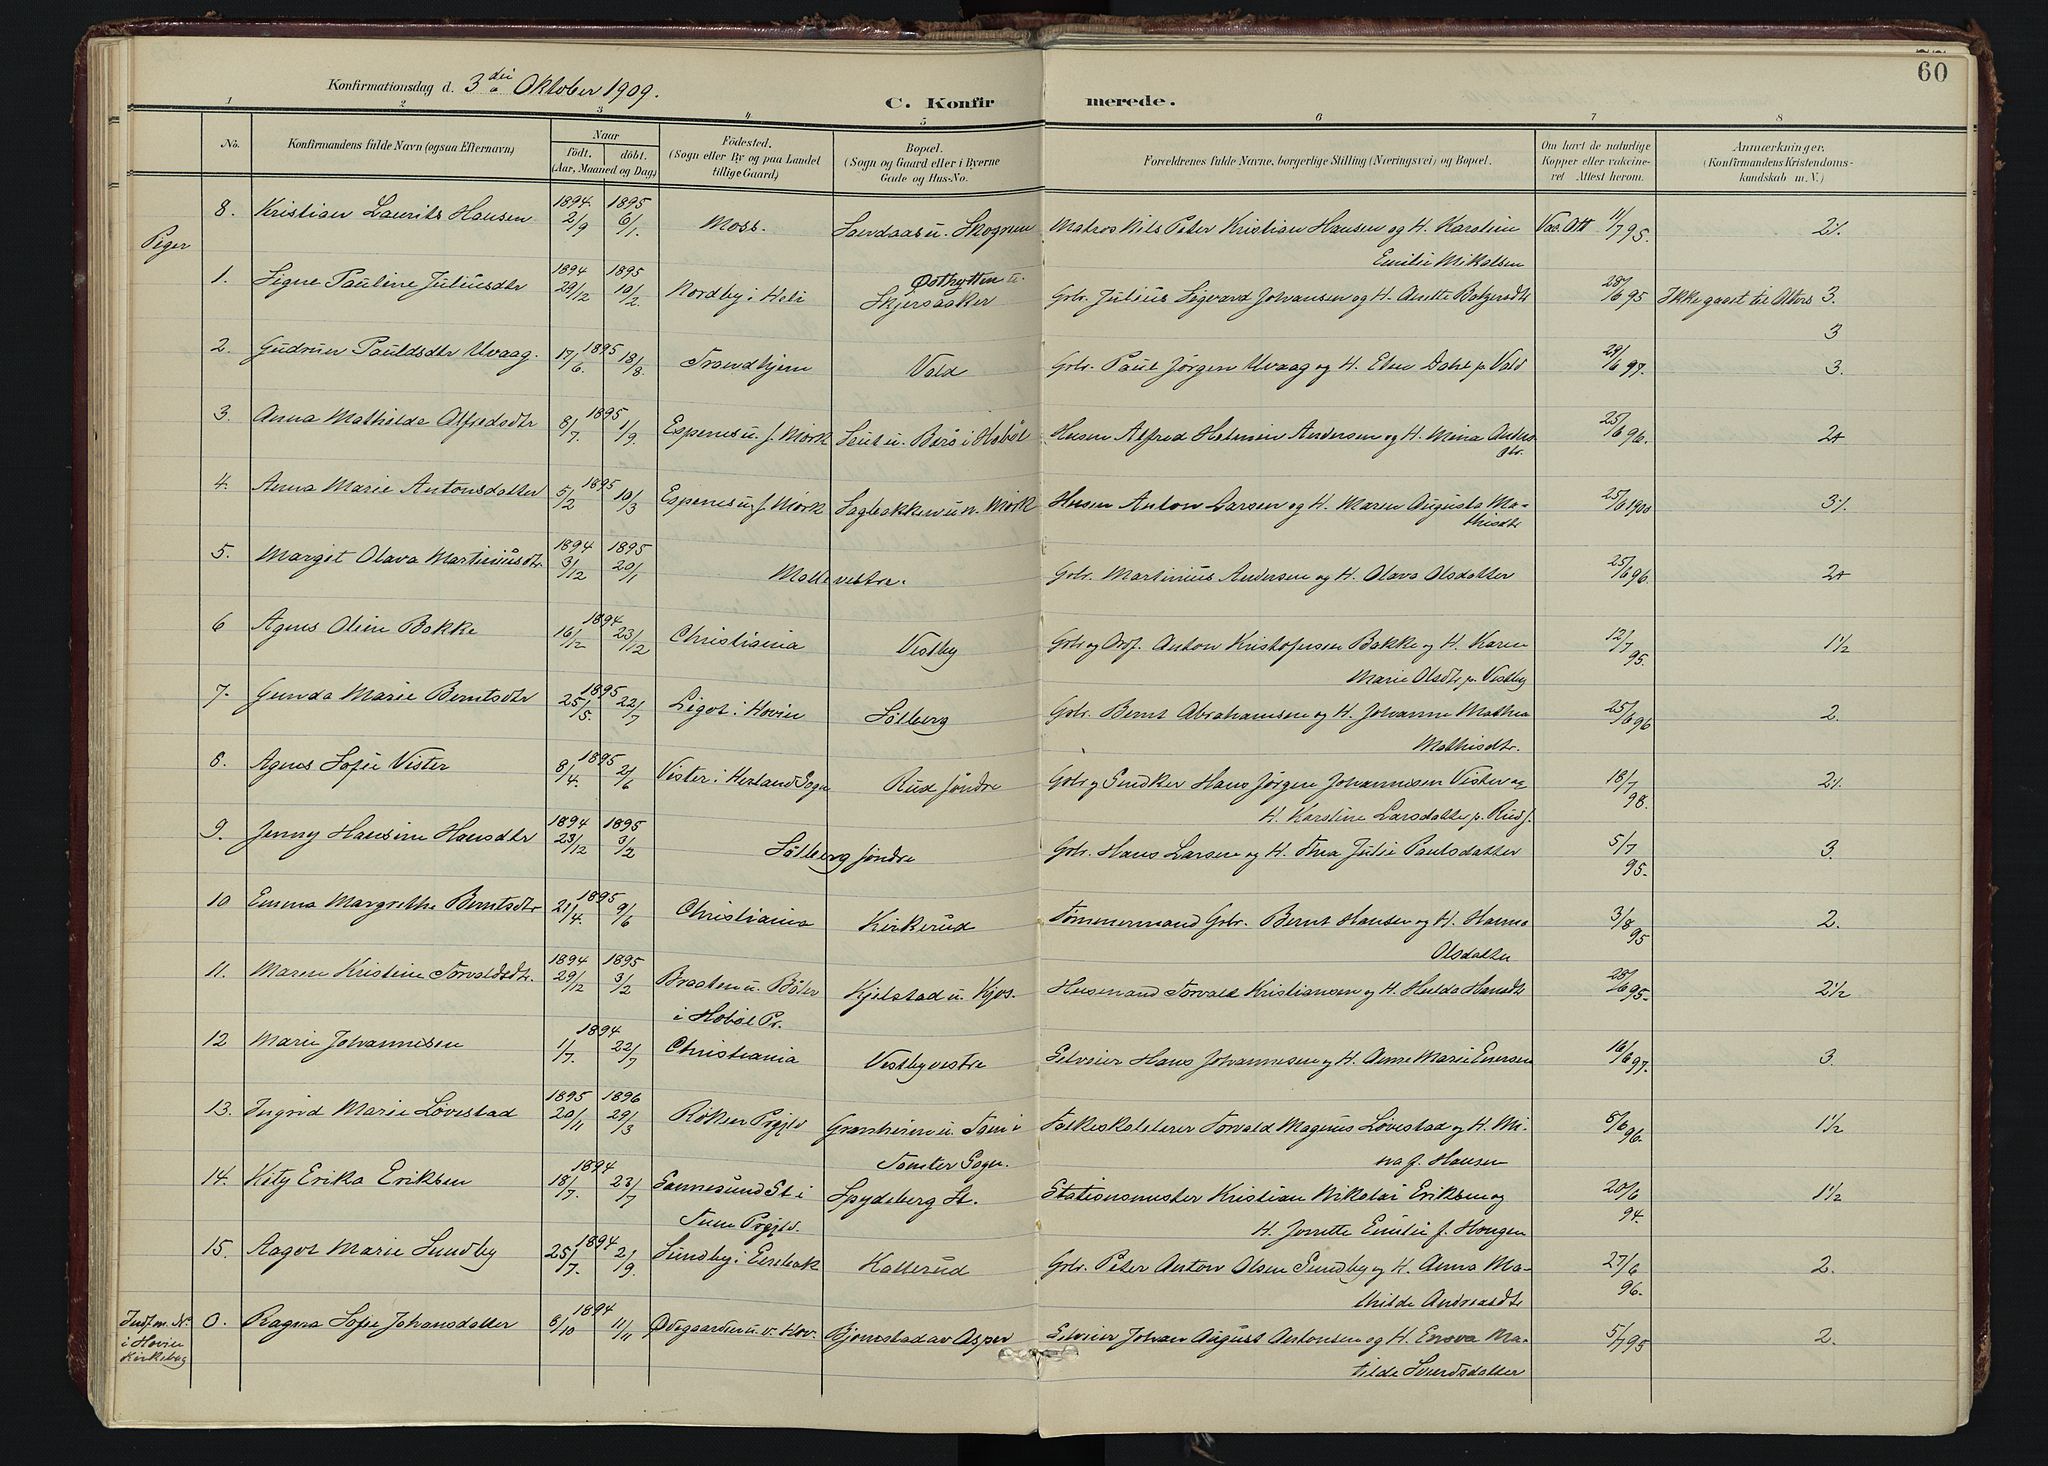 60
Konfirmationsdag d. 3die Oktober 1909.
C. Konfirmerede.
1 2 3 4 5 6 7 8
No. Konfirmandens fulde Navn (ogsaa Efternavn) Naar födt. döbt. (Aar, Maaned og Dag) Födested. (Sogn eller By og paa Landet tillige Gaard) Bopæl. (Sogn og Gaard eller i Byerne Gade og Hus-No. Foreldrenes fulde Navne, borgerlige Stilling (Næringsvei) og Bopæl. Om havt de naturlige Kopper eller vakcineret Attest herom. Anmærkninger. (Konfirmandens Kristendomskundskab m. V.)
8. Kristian Laurits Hansen 1894 2/9 1895 6/1. Moss. Sandaas u. Skognen Matros Nils Peter Kristian Hansen og H. Karoline Vac. Att 11/7 95. 2½
Emilie Mikalsen
Piger
1. Signe Pauline Juliusdtr 1894 29/12 1895 10/2. Nordby i Heli Østhytten u. Skjersaaker Gbr. Julius Sigvard Johansen og H. Anette Bolgersdtr 28/6 95 Ikke gaaet til Alters 3.
3
2. Gudrun Paulsdtr Uvaag. 1895 17/6. 18/8. Trondhjem Vold Gbr. Paul Jørgen Uvaag og H. Elen Dahl p. Vold 29/6 97. 3.
3. Anna Mathilde Alfredsdtr 1895 8/7. 1/9. Espenes u. f. Mørk Laut u. Berg i Hobøl Husm Alfred Helmin Andersen og H. Mina Anders 25/6 96. 2+
dtr.
4. Anna Marie Antonsdatter 1895 5/2 10/3 Espenes u. f. Mørk Sagbakken u. n. Mørk Husm Anton Larsen og H. Maren Augusta Ma- 25/6 1900 3½
thisdtr
5. Margit Olava Martiniusdtr. 1894 3/12 1895 20/1 Molle vestre. Gbr. Martinius Andersen og H. Olava Olsdatter 25/6 96. 2+
6 Agnes Oline Bakke 1894 16/12 23/12 Christiania Vestby Gbr og Ordf. Anton Kristofersen Bakke og H. Karen 12/7 95. 1½
Marie Olsdtr p. Vestby
7. Gunda Marie Berntsdtr 1895 25/5. 22/7 Ligot i Hovin Sølberg Gbr. Bernt Abrahamsen og H. Johanne Mathea 25/6 96 2.
Mathisdtr.
8. Agnes Sofie Vister 1895 8/4. 2/6 Vister i Herland Sogn Rud søndre Gbr og Smed Hans Jørgen Johannesen Vister og 18/7 98. 2½
H. Karoline Larsdatter p. Rud s.
9. Jenny Hansine Hansdtr 1894 23/12 1895 3/2 Sølberg søndre Gbr. Hans Larsen og H. Thea Julie Paulsdatter 5/7 95. 3.
10 Emma Margrethe Berntsdtr 1895 21/4. 9/6 Christiania Kirkerud Tømmermand Gbr. Bernt Hansen og H. Hanna 3/8 95 2.
Olsdatter
11. Maren Kristine Torvaldsdtr. 1894 29/12 1895 3/2 Braaten u. Bøler Kjelstad u. Kjos. Husmand Torvald Kristiansen og H. Hulda Hansdtr 28/6 95. 2½
i Hobøl Pr.
12 Marie Johannesen 1894 1/7. 22/7 Christiania Vestby vestre Selveier Hans Johannesen og H. Anne Marie Eversen 16/6 97. 3.
13. Ingrid Marie Løvestad 1895 20/11 1896 29/3 Røken Prgjld Gransheim u. Tom i Folkeskolelærer Torvald Magnus Løvestad og H. Mi- 8/6 96. 1½
Tomter Sogn. na f. Hansen
14. Kity Erika Eriksen 1894 18/7. 23/7 Sannesund St i Spydeberg St. Stationsmester Kristian Nikolai Eriksen og 20/6 94. 1½
Tune Prgjld. H. Jonette Emilie f. Hougen
15. Aagot Marie Sundby 1894 25/7. 2/9. Sundby i Enebak Hallerud Gbr. Peter Anton Olsen Sundby og H. Anna Ma- 27/6 96. 2.
thilde Andreasdtr
Indf. m. Nr. i Hovin Kirkebog 0. Ragna Sofie Johansdatter 1894 8/10 11/11 Ødegaarden u. v. Hov. Bjørnstad av Asper Selveier Johan August Antonsen og H. Enova Ma- 5/7 95 2.
tilde Sverdsdatter